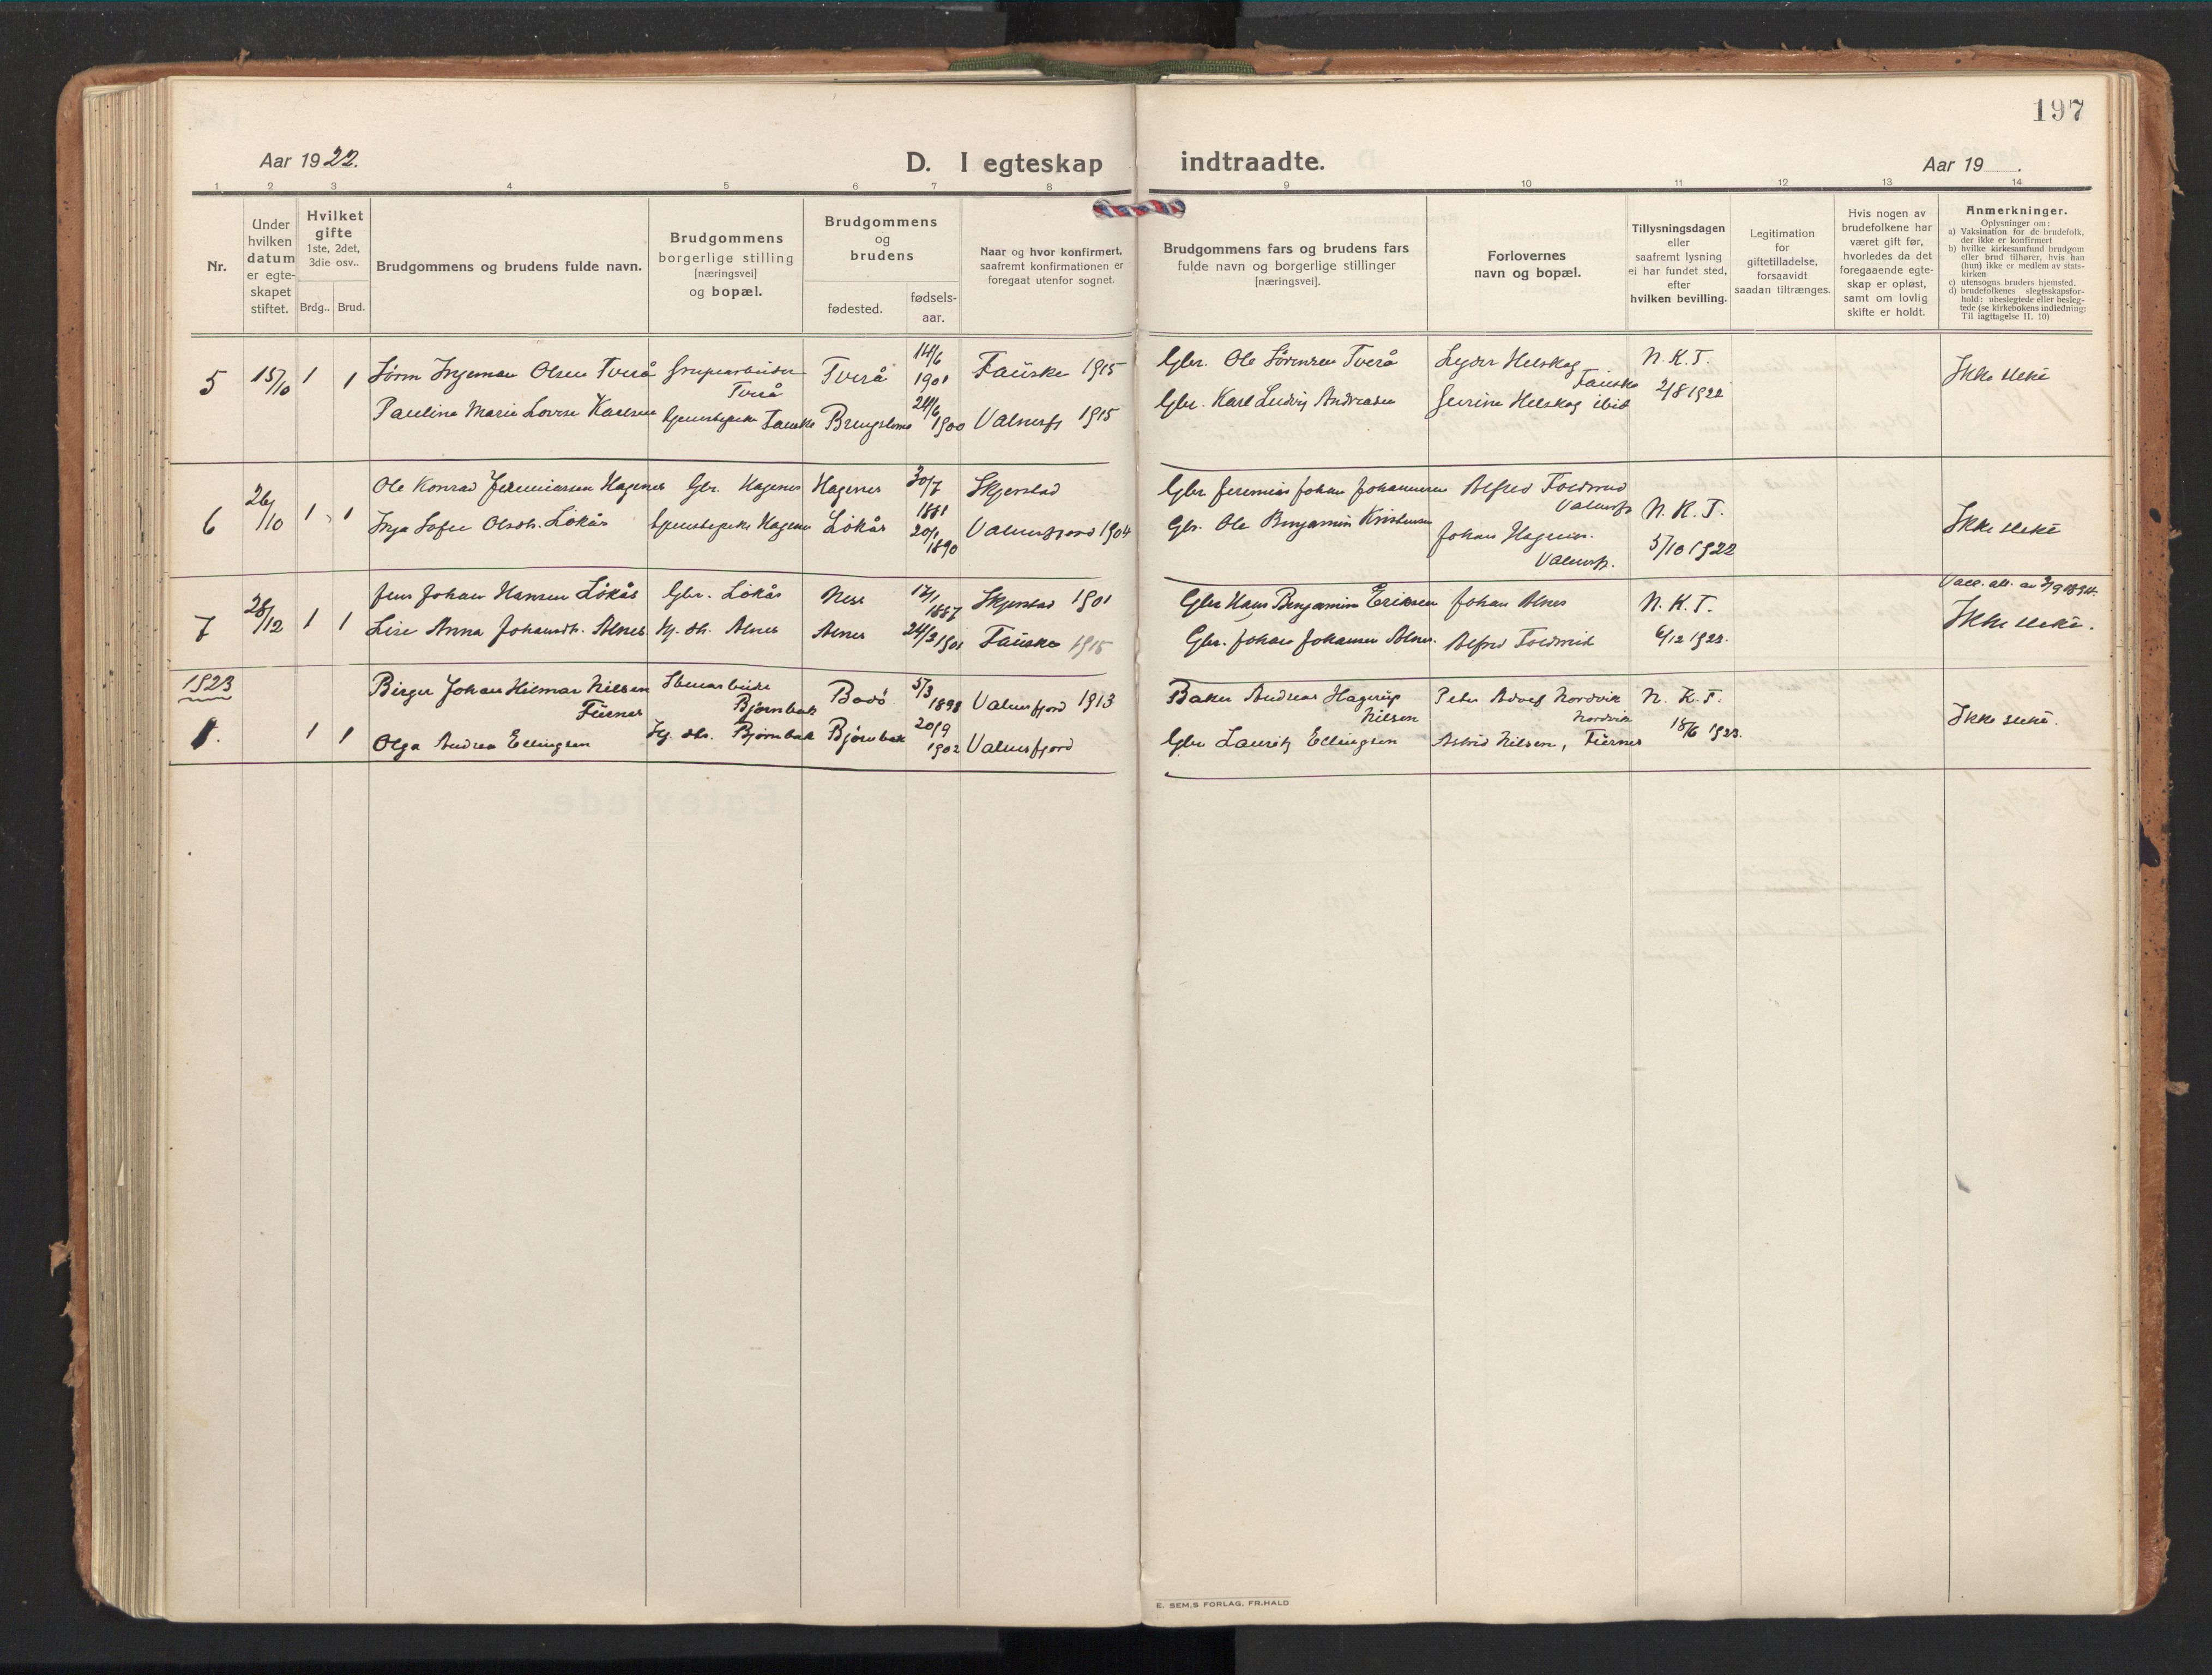 197
Aar 1922.
D. I egteskap indtraadte.
Aar 19 .
1 2 3 4 5 6 7 8 9 10 11 12 13 14
Nr.
Under hvilken datum er egteskapet stiftet.
Hvilket gifte
1ste, 2det, 3die osv..
Brdg.. Brud.
Brudgommens og brudens fulde navn.
Brudgommens borgerlige stilling [næringsvei] og bopæl.
Brudgommens og brudens
fødested.
fødsels-aar.
Naar og hvor konfirmert, saafremt konfirmationen er foregaat utenfor sognet.
Brudgommens fars og brudens fars fulde navn og borgerlige stillinger [næringsvei].
Forlovernes navn og bopæl.
Tillysningsdagen eller saafremt lysning ei har fundet sted, efter hvilken bevilling.
Legitimation for giftetilladelse, forsaavidt saadan tiltrænges.
Hvis nogen av brudefolkene har været gift før, hvorledes da det foregaaende egte-skap er opløst, samt om lovlig skifte er holdt.
Anmerkninger.
Oplysninger om:
a) Vaksination for de brudefolk, der ikke er konfirmert
b) hvilke kirkesamfund brudgom eller brud tilhører, hvis han (hun) ikke er medlem av stats-kirken
c) utensogns bruders hjemsted,
d) brudefolkenes slegtsskapsfor-hold: ubeslegtede eller besleg-tede (se kirkebokens indledning: Til iagttagelse II. 10)
5 15/10 1 1 Sørm Ingeman Olsen Tverå Grupearbeider Tverå Tverå 14/6 1901 Fauske 1915 Gbr. Ole Sørensen Tverå Helskog Fauske N.K.T. 2/8 1922 Ikke slekt
Pauline Marie Lovise Karlsen Fauske 24/6 1900 Valnesfj 1915 Gbr. Karl Ludvig Andreasen Helskog ibid
6 26/10 1 1 Ole Konrad Jeremiassen Hagenes Gbr. Hagenes Hagenes 30/7 1881 Skjerstad Gbr Jeremias Johan Johannesen Alfred Valnesfj N.K.T. 5/10 1922 Ikke slekt
Inga Sofie Olsdtr. Løkås Hagenes Løkås 20/1 1890 Valnesfjord 1904 Gbr. Ole Benjamin Kristensen Johan Hagenes. Valnesfj.
7 28/12 1 1 Jens Johan Hansen Løkås Gbr. Løkås Ness 17/1 1887 Skjerstad 1901 Gbr Hans Benjamin Eriksen Johan Alnes N.K.T. 6/12 1922. Vacc. att. av 3/9 1894. Ikke slekt.
Lise Anna Johansdtr. Alnes Hj. dtr. Alnes Alnes 24/3 1901 Fauske 1915 Gbr. Johan Johansen Alnes. Alfred
1923
1. 1 1 Birger Johan Hilmar Nilsen Furnes Stenarbeider Bjørnbak Bodø 5/3 1898 Valnesfjord 1913 Baker Andreas Hagerup Nilsen Peter Adolf Nordvik Nordvik N.K.T. 18/6 1923. Ikke slekt.
Olga Andrea Ellingsen Hj. dtr. Bjørnbak Bjørnbak 20/9 1902 Valnesfjord Gbr Lauritz Ellingsen Astrid Nilsen, Furnes
E. SEM,S FORLAG, FR.HALD